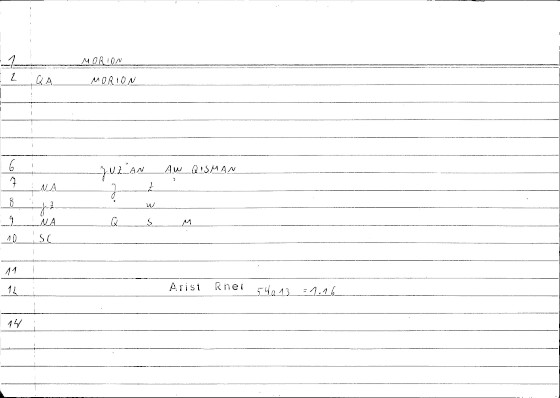 1 MORION
2 QA MORION
6 JUZ'AN AW QISMAN
7 NA J Z '
8 JZ ' W
9 NA Q S M
10 SC
11
12 Arist Rhet 54a13 =1.16
14